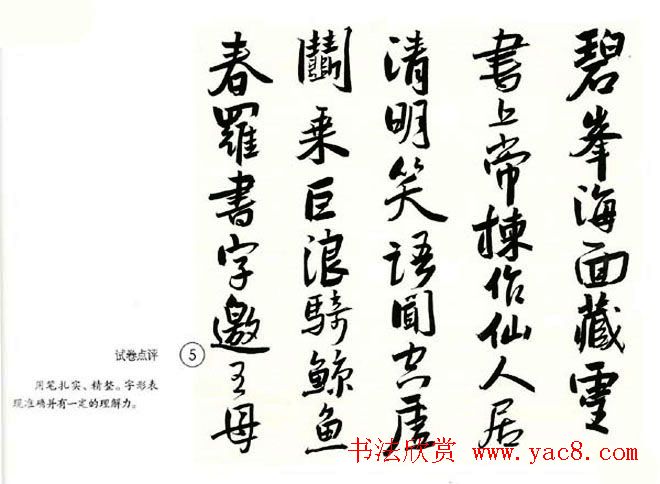 碧峯海面藏靈
書上帝揀作仙人居
清明笑語聞空虛
鬭乘巨浪騎鯨魚
春羅書字邀王母
试卷点评
⑤
用笔扎实、精整。字形表
现准确并有一定的理解力。
书法欣赏
www.yac8.com